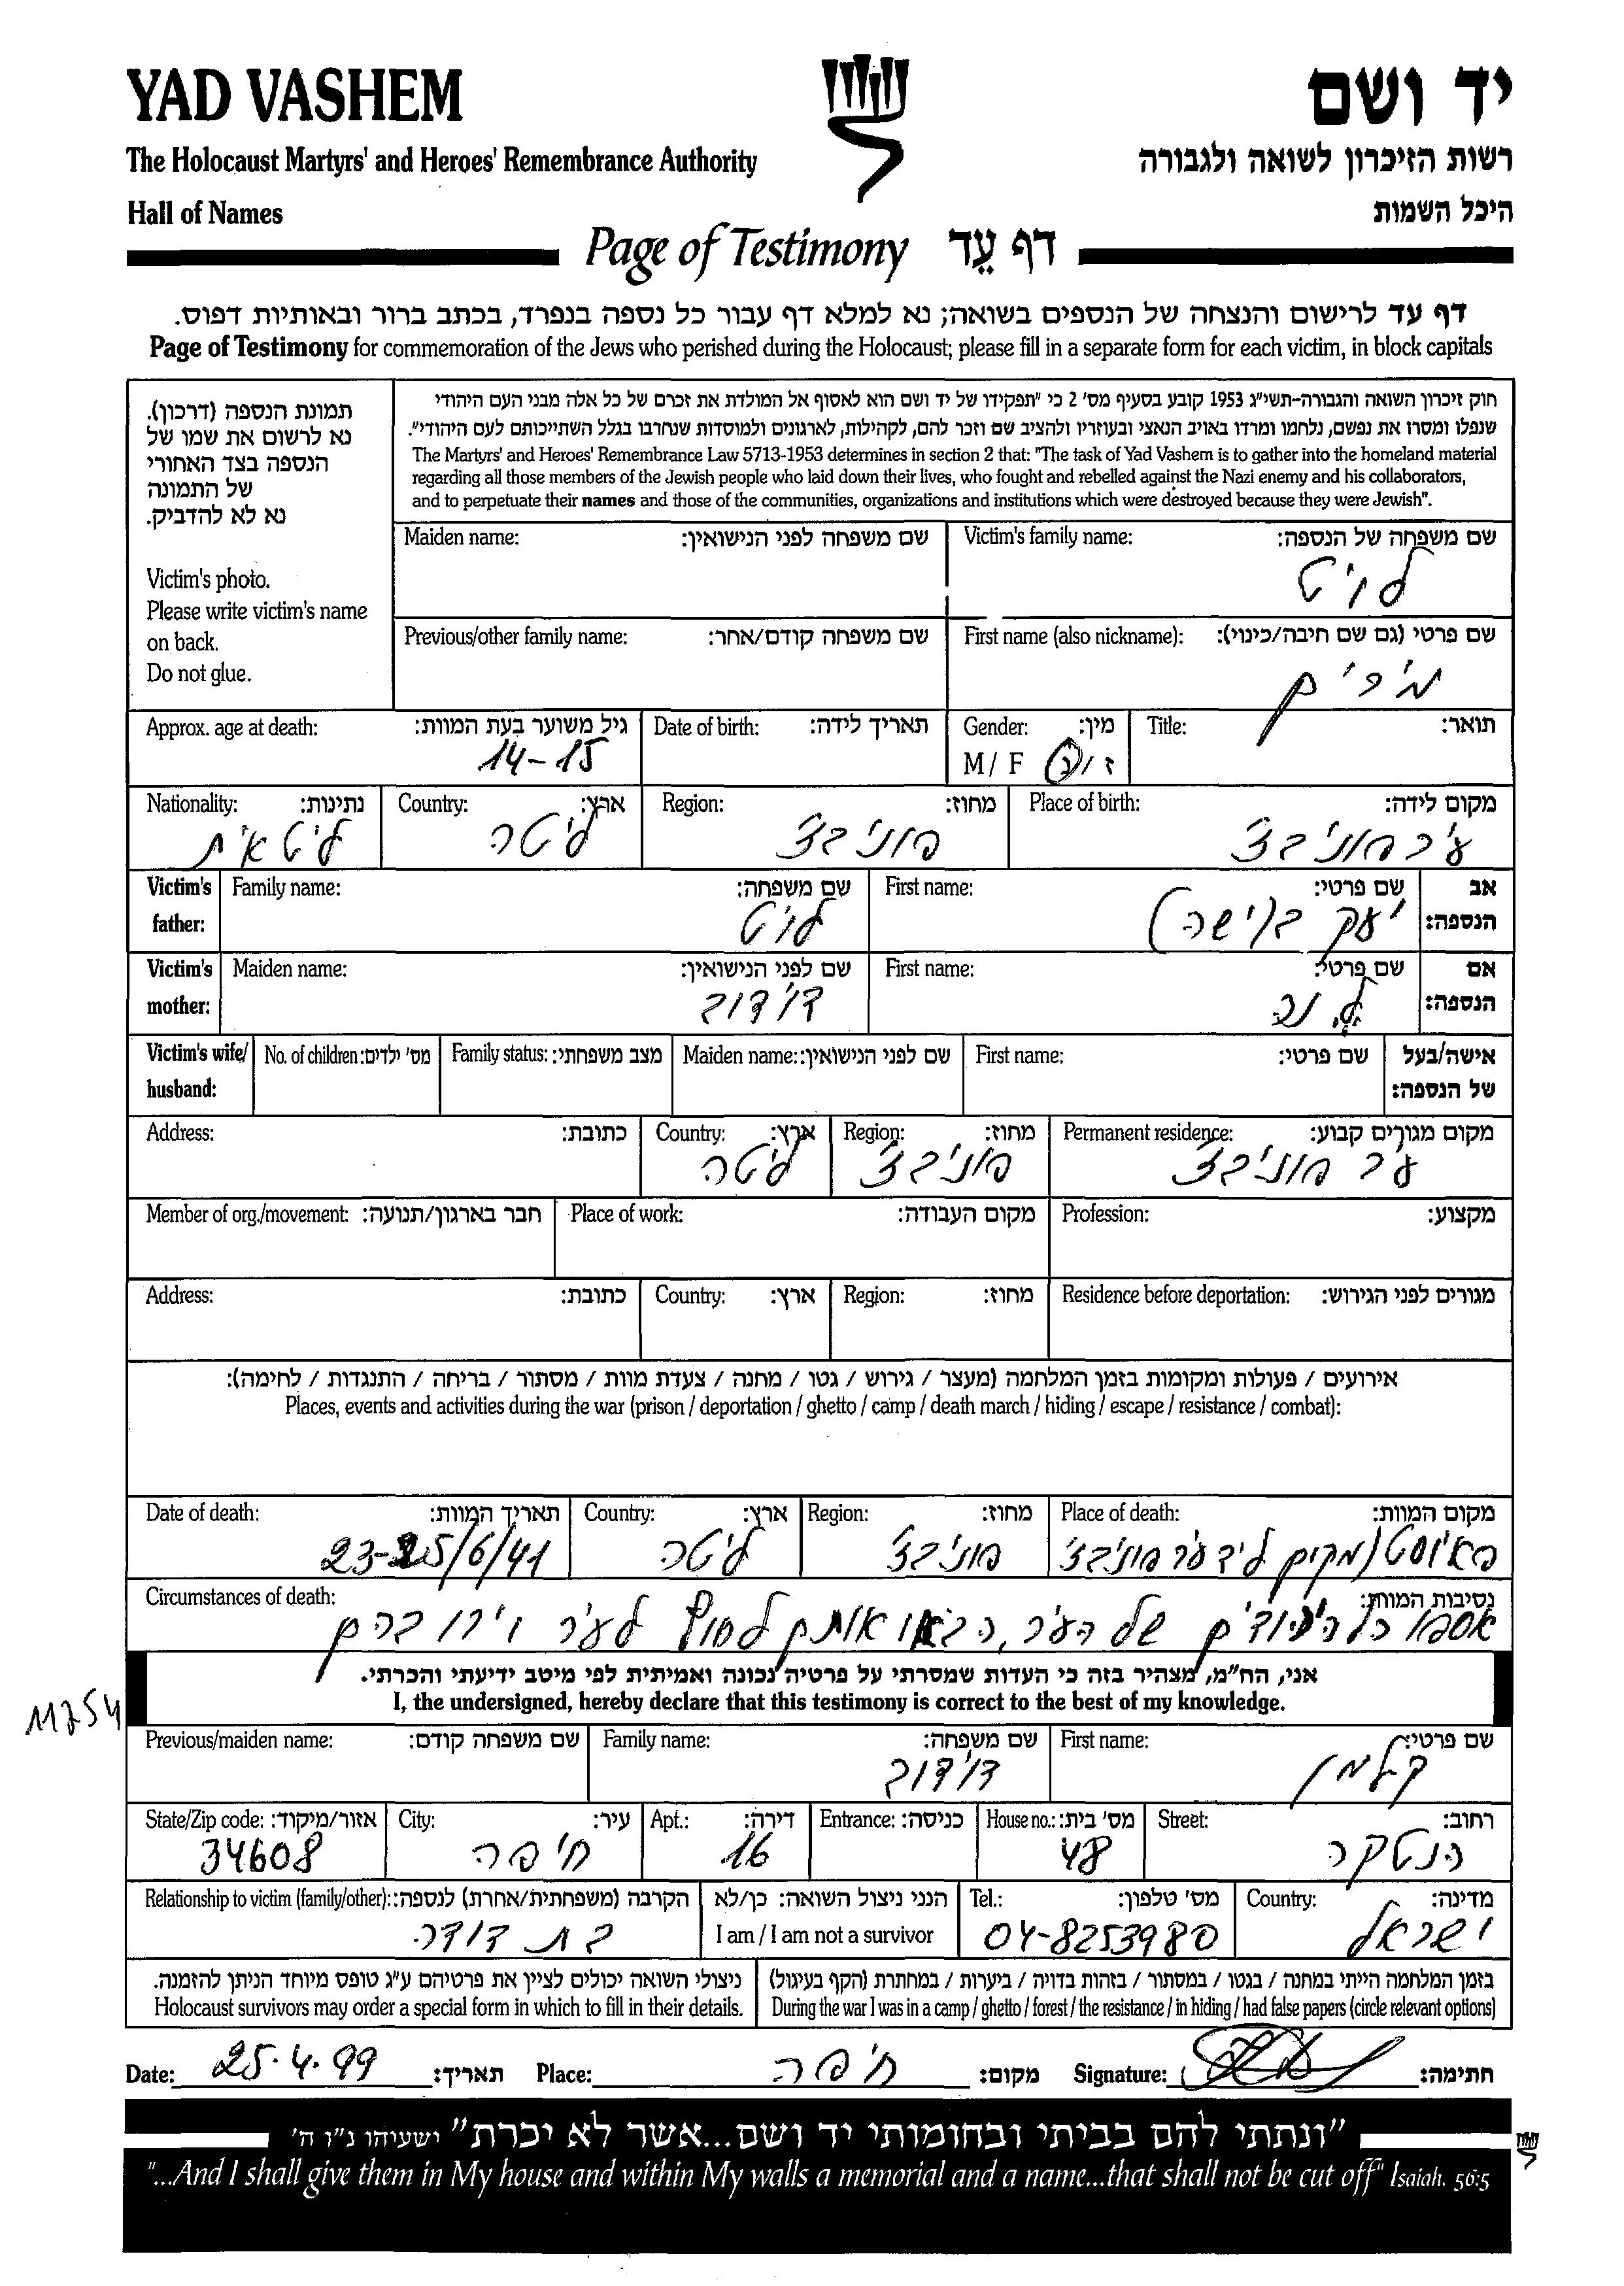 YAD VASHEM
יד ושם
The Holocaust Martyrs' and Heroes' Remembrance Authority
רשות הזיכרון לשואה ולגבורה
Hall of Names
היכל השמות
Page of Testimony דף עֵד
דף עד לרישום והנצחה של הנספים בשואה; נא למלא דף עבור כל נספה בנפרד, בכתב ברור ובאותיות דפוס.
Page of Testimony for commemoration of the Jews who perished during the Holocaust; please fill in a separate form for each victim, in block capitals
תמונת הנספה (דרכון).
נא לרשום את שמו של
הנספה בצד האחורי
של התמונה
נא לא להדביק.
Victim's photo.
Please write victim's name
on back.
Do not glue.
חוק זיכרון השואה והגבורה-תשי"ג 1953 קובע בסעיף מס' 2 כי "תפקידו של יד ושם הוא לאסוף אל המולדת את זכרם של כל אלה מבני העם היהודי
שנפלו ומסרו את נפשם, נלחמו ומרדו באויב הנאצי ובעוזריו ולהציב שם וזכר להם, לקהילות, לארגונים ולמוסדות שנחרבו בגלל השתייכותם לעם היהודי".
The Martyrs' and Heroes' Remembrance Law 5713-1953 determines in section 2 that: "The task of Yad Vashem is to gather into the homeland material
regarding all those members of the Jewish people who laid down their lives, who fought and rebelled against the Nazi enemy and his collaborators,
and to perpetuate their names and those of the communities, organizations and institutions which were destroyed because they were Jewish".
Victim's family name: שם משפחה של הנספה:
לויט
Maiden name: שם משפחה לפני הנישואין:
First name (also nickname): שם פרטי (גם שם חיבה/כינוי):
מירים
Previous/other family name: שם משפחה קודם/אחר:
Title: תואר:
Gender: מין:
M / F ז / נ
Date of birth: תאריך לידה:
Approx. age at death: גיל משוער בעת המוות:
14-15
Place of birth: מקום לידה:
עיר פוניבצ'
Region: מחוז:
פוניבצ'
Country: ארץ:
ליטה
Nationality: נתינות:
ליטאית
Victim's father: אב הנספה:
First name: שם פרטי:
יעקב (ישה)
Family name: שם משפחה:
לויט
Victim's mother: אם הנספה:
First name: שם פרטי:
Maiden name: שם לפני הנישואין:
דוידוב
Victim's wife/ husband: אישה/בעל של הנספה:
First name: שם פרטי:
Maiden name: שם לפני הנישואין:
Family status: מצב משפחתי:
No. of children: מס' ילדים:
Permanent residence: מקום מגורים קבוע:
עיר פוניבצ'
Region: מחוז:
פוניבצ'
Country: ארץ:
ליטה
Address: כתובת:
Profession: מקצוע:
Place of work: מקום העבודה:
Member of org./movement: חבר בארגון/תנועה:
Residence before deportation: מגורים לפני הגירוש:
Region: מחוז:
Country: ארץ:
Address: כתובת:
אירועים / פעולות ומקומות בזמן המלחמה (מעצר / גירוש / גטו / מחנה / צעדת מוות / מסתור / בריחה / התנגדות / לחימה):
Places, events and activities during the war (prison / deportation / ghetto / camp / death march / hiding / escape / resistance / combat):
Place of death: מקום המוות:
פאיוסט (מקום ליד עיר פוניבצ'
Region: מחוז:
פוניבצ'
Country: ארץ:
ליטה
Date of death: תאריך המוות:
23-25/6/41
Circumstances of death: נסיבות המוות:
אספו כל היהודים של העיר, הביאו אותם לחוץ לעיר וירו בהם
אני, הח"מ, מצהיר בזה כי העדות שמסרתי על פרטיה נכונה ואמיתית לפי מיטב ידיעתי והכרתי.
I, the undersigned, hereby declare that this testimony is correct to the best of my knowledge.
11254
First name: שם פרטי:
קלמן
Family name: שם משפחה:
דוידוב
Previous/maiden name: שם משפחה קודם:
Street: רחוב:
הנטקה
House no.: מס' בית:
48
Entrance: כניסה:
Apt.: דירה:
16
City: עיר:
חיפה
State/Zip code: אזור/מיקוד:
34608
Country: מדינה:
ישראל
Tel.: מס' טלפון:
04-8253980
הנני ניצול השואה: כן/לא
I am / I am not a survivor
Relationship to victim (family/other): הקרבה (משפחתית/אחרת) לנספה:
בת דודה
בזמן המלחמה הייתי במחנה / בגטו / במסתור / בזהות בדויה / ביערות / במחתרת (הקף בעיגול)
During the war I was in a camp / ghetto / forest / the resistance / in hiding / had false papers (circle relevant options)
ניצולי השואה יכולים לציין את פרטיהם ע"ג טופס מיוחד הניתן להזמנה.
Holocaust survivors may order a special form in which to fill in their details.
Date: 25.4.99 תאריך: Place: חיפה מקום: Signature: חתימה:
"ונתתי להם בביתי ובחומותי יד ושם...אשר לא יכרת" ישעיהו נ"ו ה'
"...And I shall give them in My house and within My walls a memorial and a name...that shall not be cut off" Isaiah, 56:5